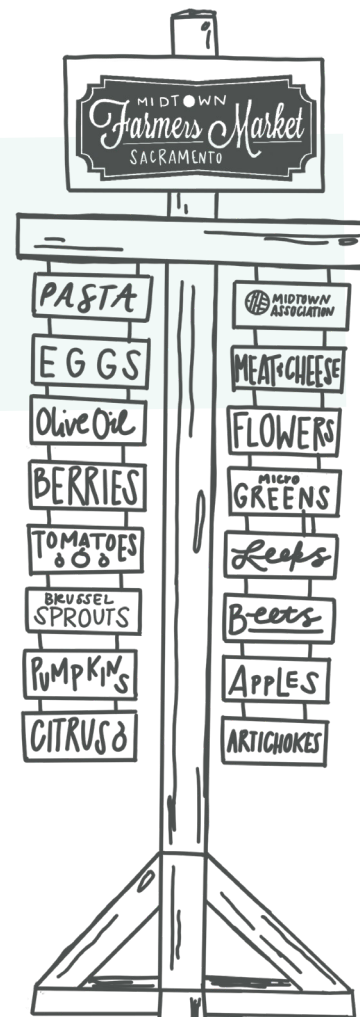 MIDTOWN
Farmers Market
SACRAMENTO
PASTA
EGGS
Olive Oil
BERRIES
TOMATOES
BRUSSEL
SPROUTS
PUMPKINS
CITRUS
MIDTOWN
ASSOCIATION
MEAT & CHEESE
FLOWERS
MICRO
GREENS
Leeks
Beets
APPLES
ARTICHOKES